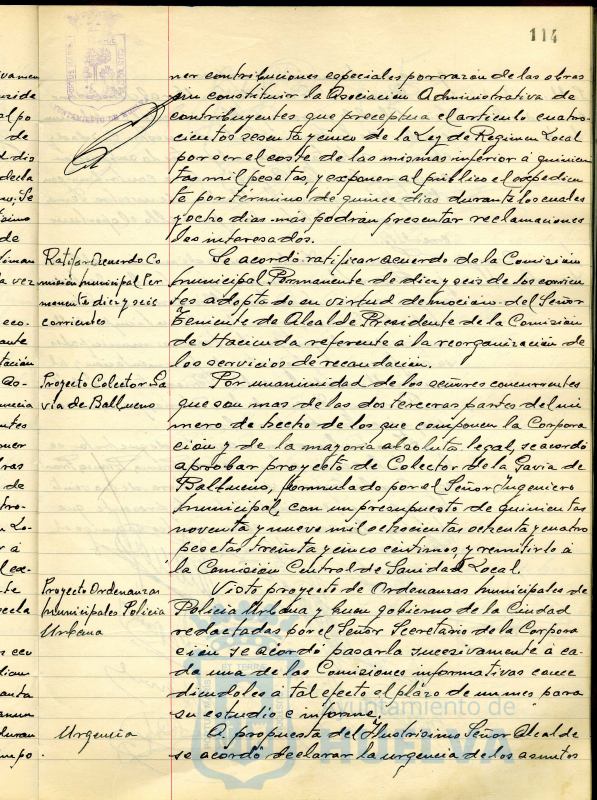 114
ner contribuciones especiales por razón de las obras
sin constituir la Asociación Administrativa de
contribuyentes que preceptua el artículo cuatro-
cientos sesenta y cinco de la Ley de Regimen Local
por ser el coste de las mismas inferior á quinien
tas mil pesetas, y exponer al público el expedien
te por término de quince dias durante los cuales
y ocho dias más podrán presentar reclamaciones
los interesados.
Ratificar acuerdo Co
misión municipal Per
manente diez y seis
corrientes
Se acordó ratificar acuerdo de la Comisión
municipal Permanente de diez y seis de los corrien
tes adoptado en virtud de moción del Señor
Teniente de Alcalde Presidente de la Comisión
de Hacienda referente a la reorganización de
los servicios de recaudación.
Proyecto Colector Ga
via de Balbueno
Por unanimidad de los señores concurrentes
que son mas de las dos terceras partes del nú
mero de hecho de los que componen la Corpora
ción y de la mayoria absoluta legal, se acordó
aprobar proyecto de Colector de la Gavia de
Balbueno, formulado por el Señor Ingeniero
municipal, con un presupuesto de quinientas
noventa y nueve mil ochocientas ochenta y cuatro
pesetas treinta y cinco centimos, y remitirlo á
la Comisión Central de Sanidad Local.
Proyecto Ordenanzas
municipales Policia
Urbana
Visto proyecto de Ordenanzas municipales de
Policia Urbana y buen gobierno de la Ciudad
redactadas por el Señor Secretario de la Corpora
ción se acordó pasarla sucesivamente á ca-
da una de las Comisiones informativas conce
diendoles a tal efecto el plazo de un mes para
su estudio é informe.
Urgencia
A propuesta del Ilustrisimo Señor Alcalde
se acordó declarar la urgencia de los asuntos
Ayuntamiento de
HUELVA